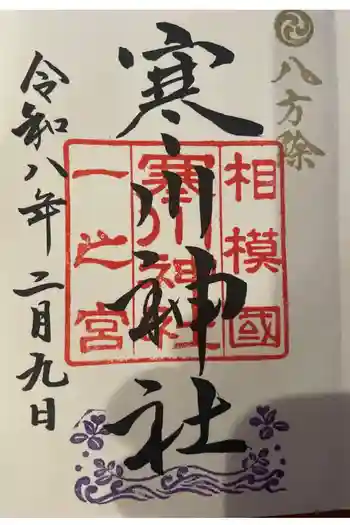 八方除
寒川神社
相模國
寒川神社
一之宮
令和八年二月九日